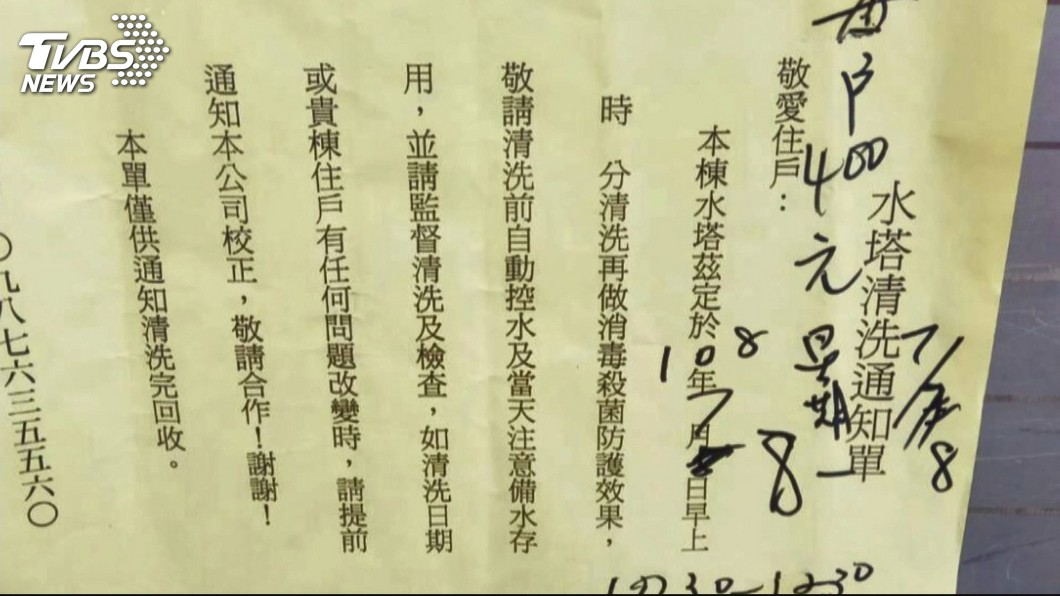 TVBS
NEWS
每戶400元
星期一
7/8
水塔清洗通知單
敬愛住戶：
本棟水塔茲定於108年7月8日早上
時 分清洗再做消毒殺菌防護效果，
敬請清洗前自動控水及當天注意備水存
用，並請監督清洗及檢查，如清洗日期
或貴棟住戶有任何問題改變時，請提前
通知本公司校正，敬請合作！謝謝！
本單僅供通知清洗完回收。
〇九八七六三五五六〇